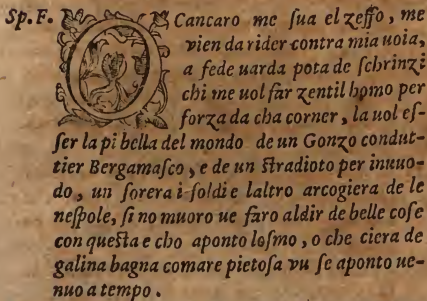 Sp. F. O Cancaro me ſua el zeffo, me
vien da rider contra mia uoia,
a fede uarda pota de ſchrinzi
chi me uol far zentil homo per
forza da cha corner, la uol eſ-
ſer la pi bella del mondo de un Gonzo condut-
tier Bergamaſco, e de un ſtradioto per inuuo-
do, un ſorera i ſoldi e laltro arcogiera de le
neſpole, ſi no muoro ue faro aldir de belle coſe
con queſta e cho aponto loſmo, o che ciera de
galina bagna comare pietoſa vu ſe aponto ue-
nuo a tempo.